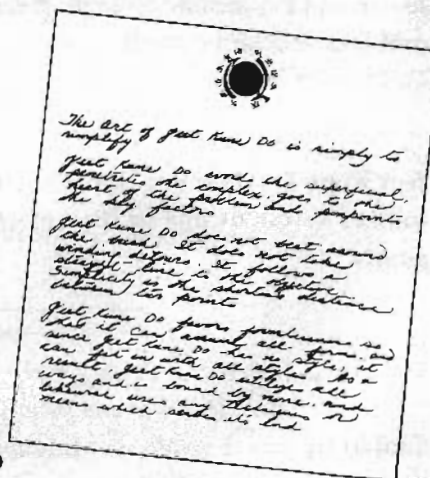 The art of Jeet Kune Do is simply to
simplify
Jeet Kune Do avoids the superficial,
penetrates the complex, goes to the
heart of the problem and pinpoints
the key
Jeet Kune Do does not beat around
the bush. It does not take
winding detours. It follows a
straight line to the objective.
Simplicity is the shortest distance
between two points
Jeet Kune Do favors formlessness so
that it can assume all forms, and
since Jeet Kune Do has no style, it
can fit in with all styles. As a
result, Jeet Kune Do utilizes all
ways and is bound by none, and
likewise uses any techniques or
means which serves its end